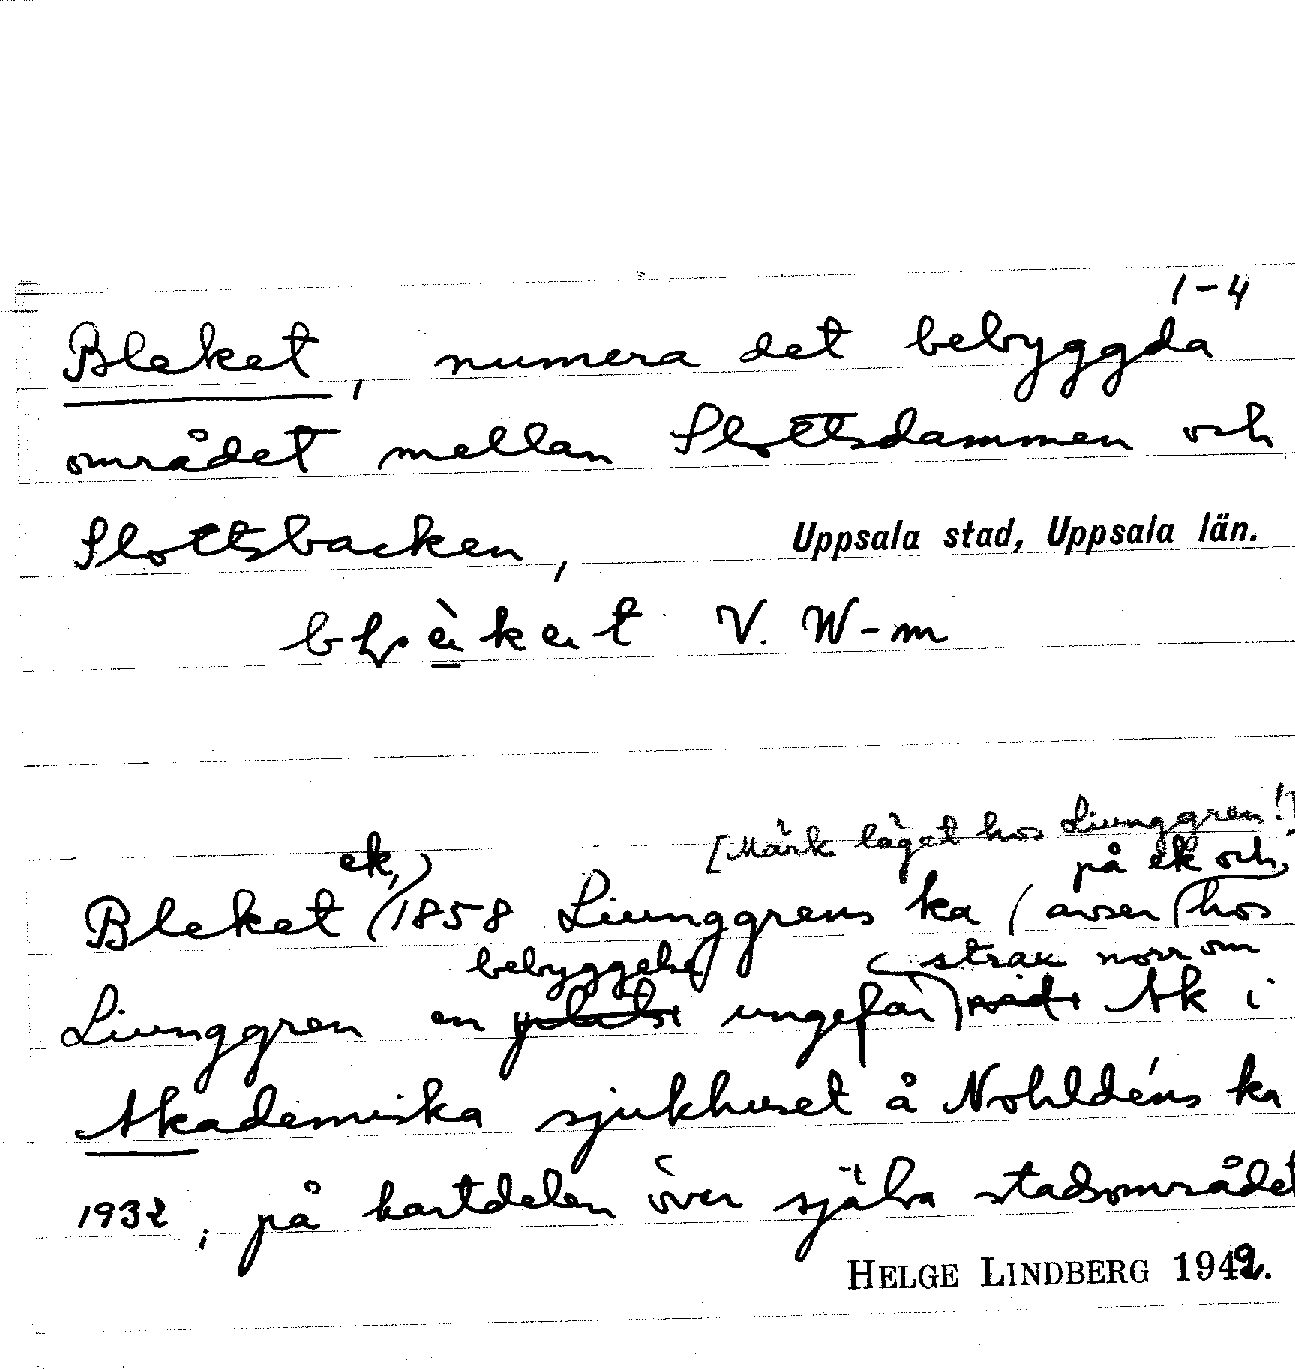 1-4
Bleket, numera det bebyggda
området mellan Slottsdammen och
Slottsbacken,
Uppsala stad, Uppsala län.
V. W-m
[Märk läget hos Ljunggren!]
ek,
på ek och
Bleket (1858 Ljunggrens ka (avser hos
bebyggelse
strax norr om
Ljunggren en plats ungefär vid Ak i
Akademiska sjukhuset å Nohldéns ka
1932, på kartdelen över själva stadsområdet
HELGE LINDBERG 1942.